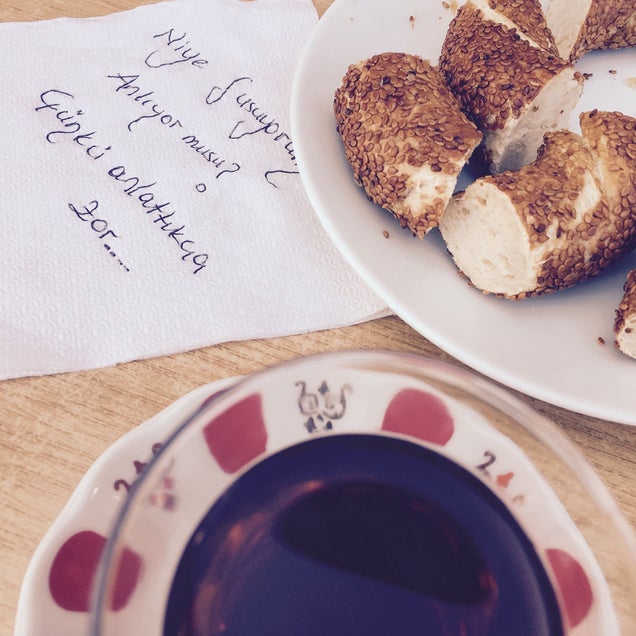 Niye Susuyorum
Anlıyor musun?
Çünkü anlattıkça
zor....